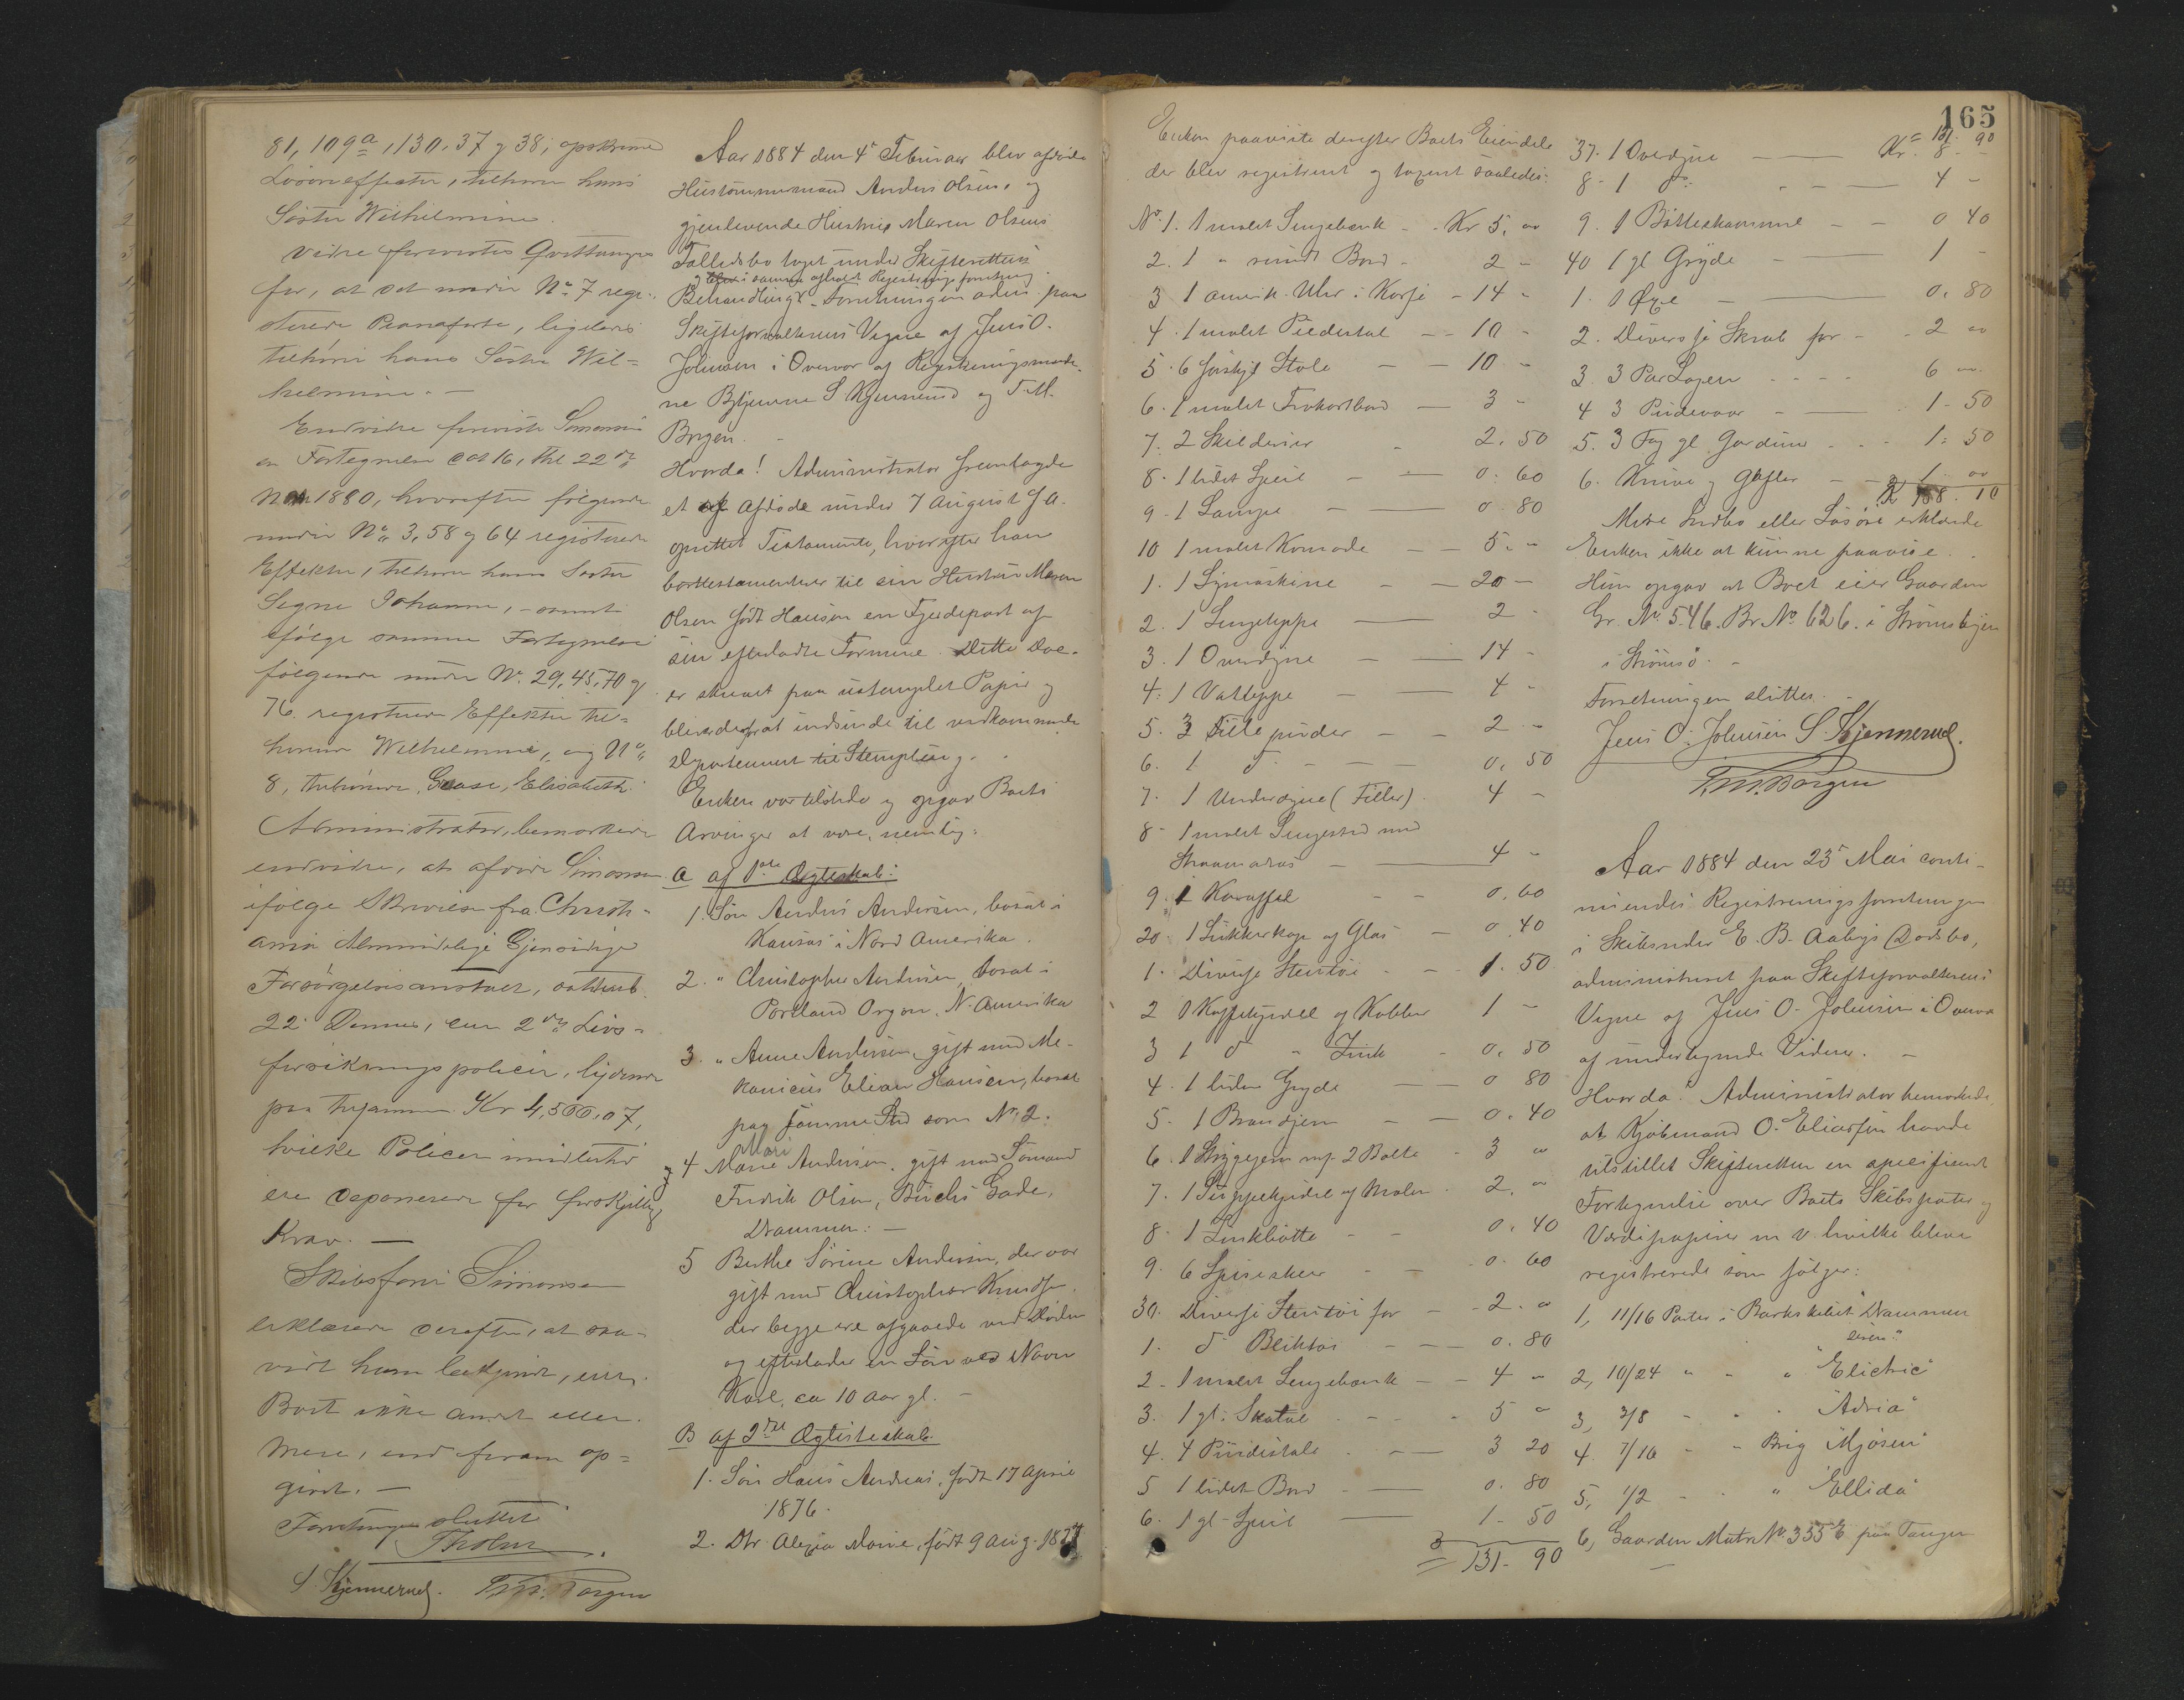 81, 109a, 130, 37 og 38, opskrevne
Løsøreeffecter, tilhører hans
Søster Wilhelmine.
Videre foreviste Qvitteringer
for, at det under No. 7 regi-
strerede Pianoforte, ligeledes
tilhører hans Søster Wil-
helmine. -
Endvidere foreviste Simonsen
en Fortegnelse dat 16, til 22de
1880, hvorefter følgende
under No. 3, 58 og 64 registrerede
Effekter, tilhører hans Søster
Signe Johanne, - samt
ifølge samme Fortegnelse
følgende under No. 29, 45, 70 og
76. registrerede Effekter til-
hører Wilhelmine, og No.
8, tilhører Elisabeth.
Administrator bemærkede
endvidere, at afdøde Simonsen
ifølge Skrivelse fra Christi-
ania Almindelige Gjensidige
Forsørgelsesanstalt, datert
22 Dennes, eier 2de Livs-
forsikringspolicer, lydende
paa tilsammen Kr 4,500,07,
hvilke Policer imidlertid
ere deponerede for forskjellige
Krav. -
Skibsfører Simonsen
erklærede derefter, at saa-
vidt ham bekjendt, eier
Boet ikke andet eller
mere, end foran op-
givet. -
Forretningen sluttet
Tholm
S. Kjennerud. T. M. Borgen
Aar 1884 den 4de Februar blev afdøde
Huustømmermand Anders Olsens og
gjenlevende Hustru Maren Olsens
Fællesbo taget under Skifterettens
og blev i samme afholdt Registreringsforretning
Behandling. Forretningen adm. paa
Skifteforvalterens Vegne af Jens O.
Johnsen i Overvær af Registreringsmænde-
ne Bytjenerne S Kjennerud og T. M.
Borgen.
Hvorda! Administrator fremlagde
et af Afdøde under 7 August f A.
oprettet Testamente, hvorefter han
borttestamenterer til sin Hustru Maren
Olsen født Hansen en Fjerdepart af
sin efterladte Formue. Dette Doc.
er skrevet paa ustemplet Papir og
bliver derfor at indsende til vedkommende
Departement til Stempling.
Enken var tilstede og opgav Boets
Arvinger at være, nemlig:
A af 1ste Ægteskab:
1. Søn Anders Andersen, bosat i
Kansas i Nord Amerika.
2. " Christopher Andersen, bosat i
Portland Orgon, N. Amerika
3. " Anne Andersen, gift med Me-
kanicus Elias Hansen, bosat
paa samme Sted som No. 2.
Mari
og 4 Marie Andersen, gift med Sømand
Fredrik Olsen, Buchs Gade,
Drammen. -
5 Berthe Sørine Andersen, der var
gift med Christopher Knudsen
der begge ere afgaaede ved Døden
og efterlader en Søn ved Navn
Karl, ca 10 aar gl. -
B af 2det Ægteskab
1. Søn Hans Andreas, født 17 April
1876.
2. Dtr Alexia Marie, født 9 Aug. 1877
165
Enken paaviste derefter Boets Eiendele
der blev registreret og taxeret saaledes:
No. 1. 1 malet Sengebænk - Kr 5. "
2. 1 " rundt Bord - 2 -
3 1 amerik. Uhr i Kasse - 14 -
4. 1 malet Piedestal - 10 -
5. 6 forskjl Stole - 10 -
6. 1 malet Frokostbord - 3 -
7. 2 Skilderier - 2. 50
8. 1 lidet Speil - 0. 60
9 - 1 Lampe - 0. 80
10 1 malet Komode - 5. -
1. 1 Symaskine - 20 -
2. 1 Sengeteppe - 2 -
3. 1 Overdyne - 14 -
4. 1 Vatteppe - 4 -
5. 3 Lille puder - 2 -
6. 1 do - 0. 50
7. 1 Underdyne (Filler) 4 -
8 - 1 malet Sengested med
Straamadras - 4 -
9. 1 Karaffel - 0. 60
20. 1 Sukkerkop og Glas - 0. 40
1. Diverse Stentøi - 1. 50
2 1 Kaffekjedel af Kobber 1 -
3 1 do " Zink - 0. 50
4. 1 liden Gryde - 0 80
5. 1 Brandjern - 0. 40
6. 1 Strygejern m/ 2 Bolte - 3 "
7. 1 Suppekjedel af Malm 2. "
8. 1 Zinkbøtte - 0. 40
9. 6 Spiseskeer - 0. 60
30. Diverse Stentøi for - 2. "
1. do Bliktøi - 0. 80
2 - 1 malet Sengebænk - 4 -
3. 1 gl. Skatol - 5 "
4. 4 Pindestole - 3 20
5 1 lidet Bord - 0. 80
6. 1 gl - Speil - 1 - 50
131 - 90
Kr. 131. 90
37. 1 Overdyne - 8 -
8 - 1 do - 4 -
9. 1 Bøtteskamme - 0 40
40 1 gl Gryde - 1 -
1. 1 Øxe - 0. 80
2. Diverse Skrab for - 2 "
3. 3 Par Lagen - 6 "
4 3 Pudevaar - 1 - 50
5. 3 Fag gl. Gardiner - 1. 50
6. Knive og Gafler - 1 "
Kr 158. 10
Mere Indbo eller Løsøre erklærede
Enken ikke at kunne paavise.
Hun opgav at Boet eier Gaarden
Gr. No 546. Br No. 626. i Strømsbyen
i Strømsø. -
Forretningen sluttet.
Jens O. Johnsen S. Kjennerud.
T. M. Borgen
Aar 1884 den 23de Mai conti-
nueredes Registreringsforretningen
i Skibsreder E. B. Aabys Dødsbo,
administreret paa Skifteforvalterens
Vegne af Jens O. Johnsen i Overvær
af undertegnede Vidner. -
Hvorda: Administrator bemærkede
at Kjøbmand O. Eliassen havde
tilstillet Skifteretten en specificeret
Fortegnelse over Boets Skibsparter og
Værdipapirer m v. hvilke bleve
registrerede som følger:
1, 11/16 Parter i Barkskibet "Drammens
eren"
2, 10/24 " " " "Electric"
3, 3/8 - " " "Adria"
4. 7/16 " " Brig "Mjøsen"
5, 1/2 - " " "Ellida"
6, Gaarden Matr No. 335 E paa Tangen